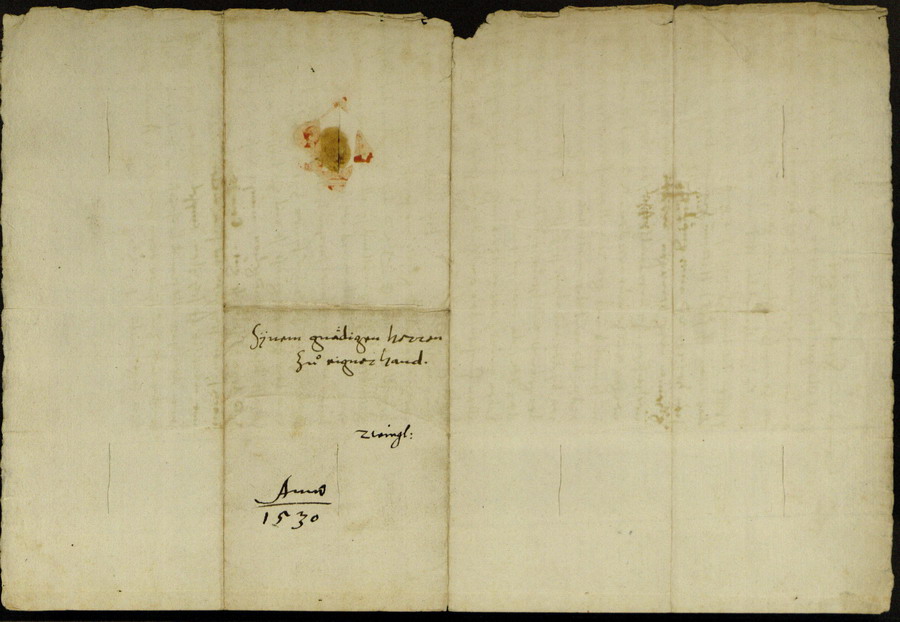 Synem gnädigen herren
zů eigner hand.
zwingl:
Anno
1530